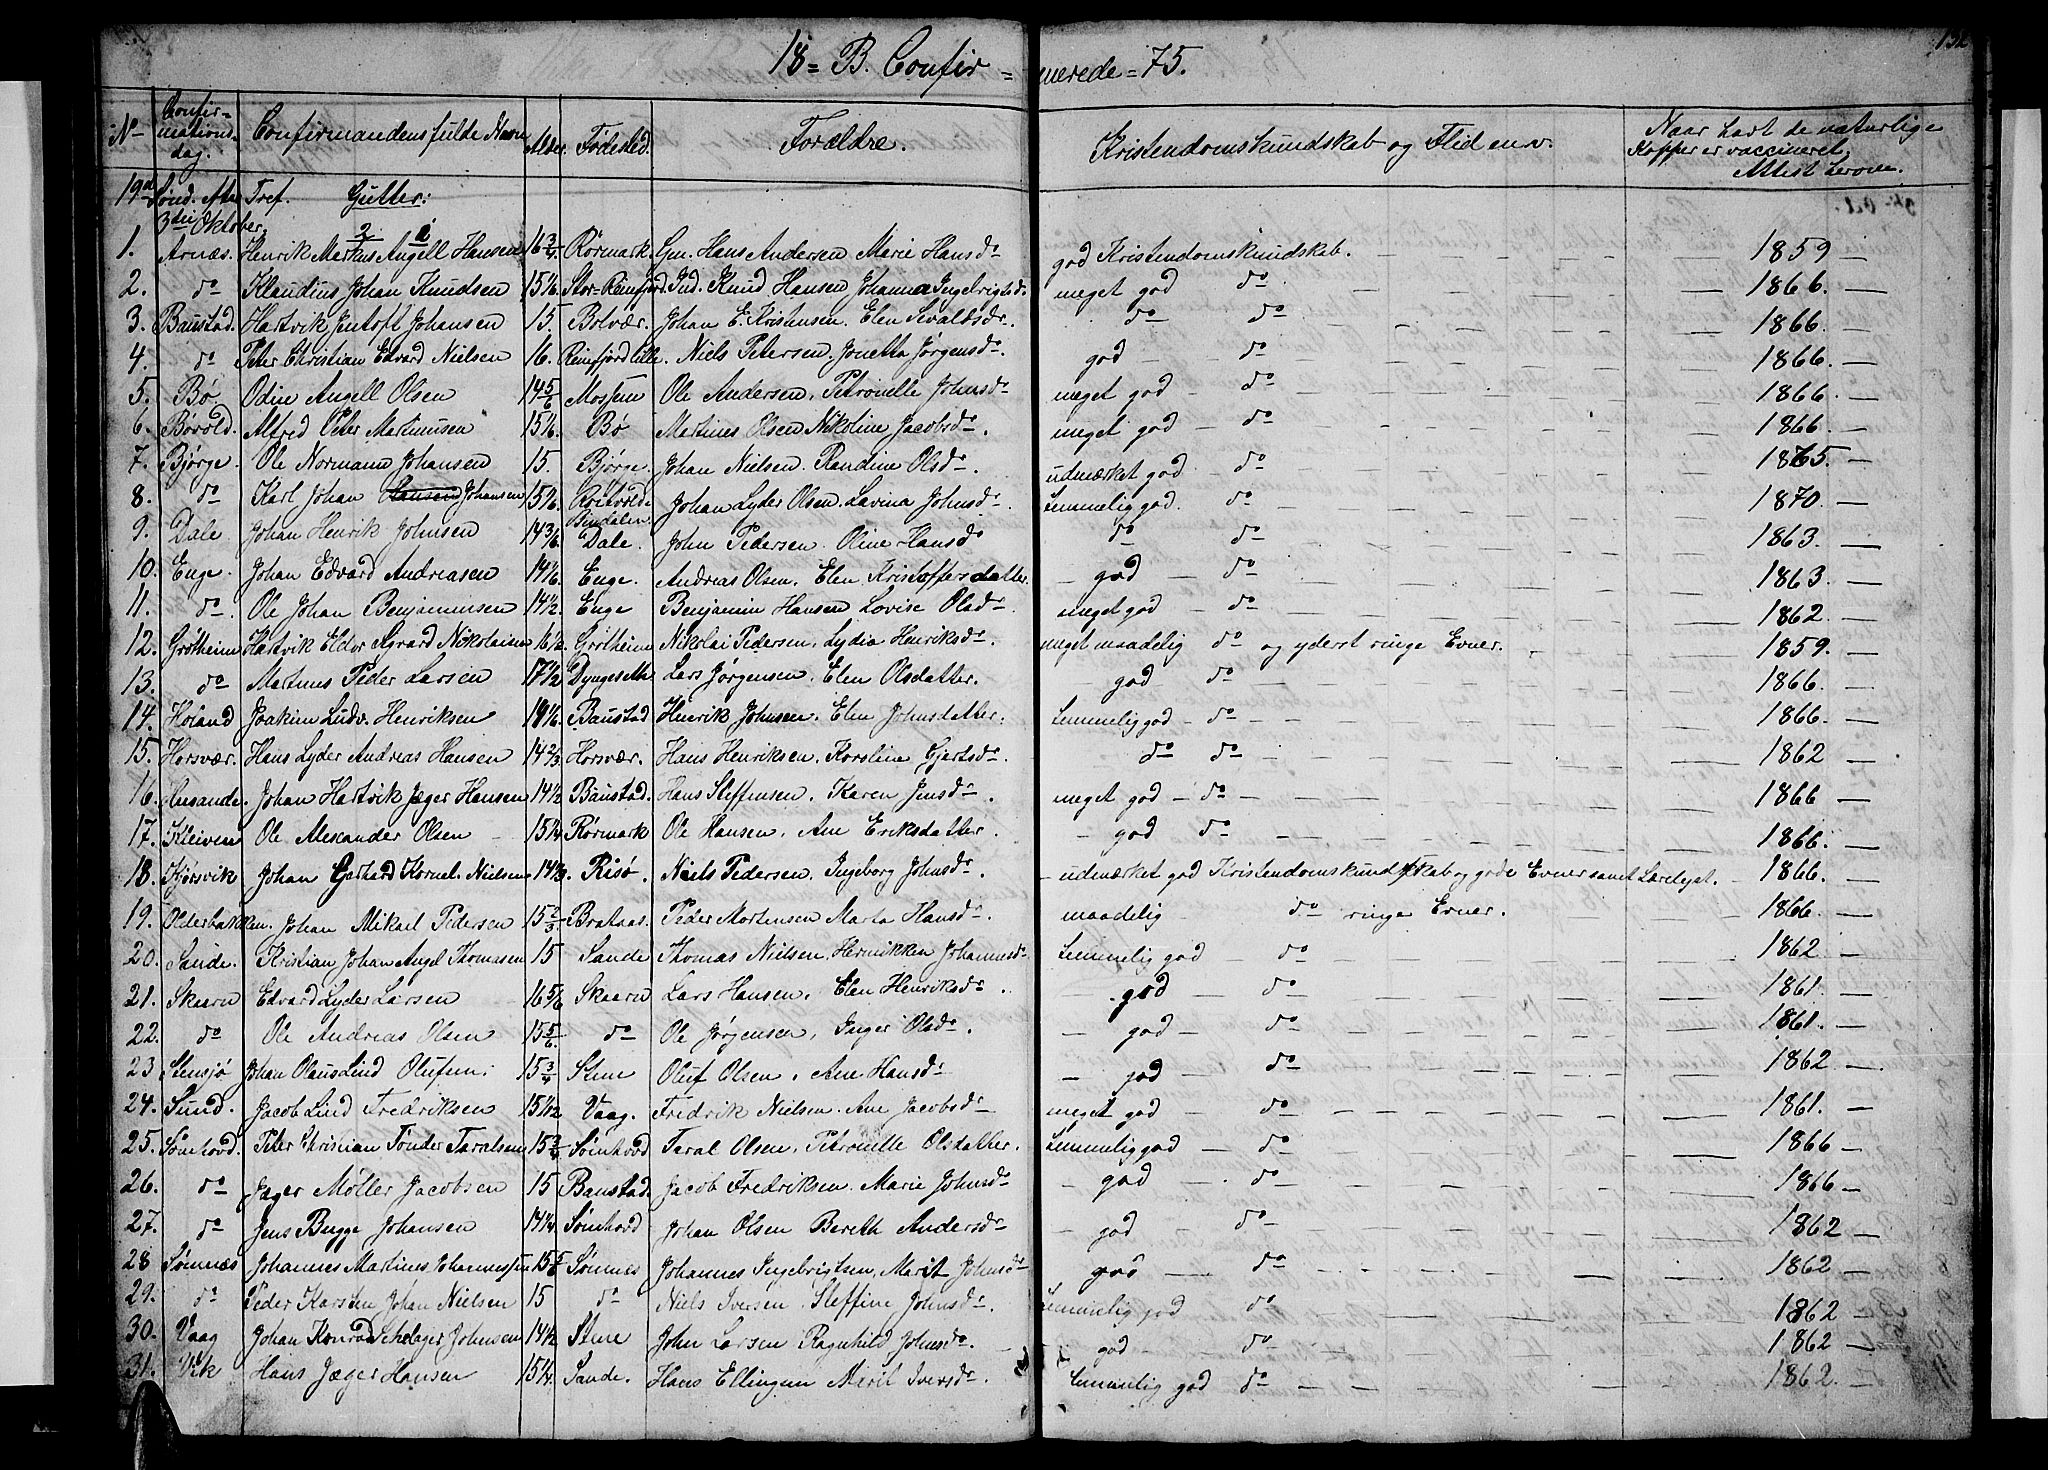 18 = B. Confir = merede = 75.
No Confirmations dag. Confirmandens fulde Navn Alder. Fødested. Forældre. Kristendomskundskab og Flid m.v. Naar havt de naturlige Kopper er vaccineret, Attest herom.
19de Sønd. efter Tref. Gutter:
3die Oktober.
1. Arnæs. Henrik Markus Angell Hansen 16 3/4. Rørmark. Gm. Hans Andersen Marie Hansdr god Kristendomskundskab. 1859
2. do Klaudius Johan Knudsen 15 1/6. Stor-Reinfjord. Ind. Knud Hansen Johanna Ingebrigtsdr meget god do 1866.
3. Baustad. Hartvik Jentoft Johansen 15. Bolvær. Johan E. Kristensen. Elen Sevaldsdr. do do 1866.
4. do Peter Christian Edvard Nielsen 16. Reinfjord lille. Niels Petersen. Jonetta Jørgensdr. god do 1866.
5. Bø. Odin Angell Olsen 14 5/6 Mossem Ole Andersen, Petronelle Johnsdr meget god do 1866.
6. Børøld. Alfred Peter Martinusen 15 1/6. Bø Martines Olsen Nikoline Jacobsdr. meget god do 1866.
7. Bjørge. Ole Normann Johansen 15. Bjørge. Johan Nielsen. Randine Olsdr. udmærket god do 1865.
8. do Karl Johan Hansen Johansen 15 1/6. Bindalen. Johan Lyder Olsen. Lavina Johnsdr. temmelig god. do 1870.
9. Dale Johan Henrik Johnsen 14 3/6 Dale. John Pedersen. Oline Hansdr do do 1863.
10. Enge. Johan Edvard Andreasen 14 1/6. Enge. Andreas Olsen. Elen Kristoffersdatter. god do 1863.
11. do. Ole Johan Benjaminsen 14 1/2. Enge Benjamin Hansen Lovise Olsdr. meget god do 1862.
12. Grøtheim Hartvik Eldor Agvard Nikolaisen 16 1/2. Grøtheim. Nikolai Pedersen, Lydia Henriksdr. meget maadelig do og yderst ringe Evner. 1859.
13. do Martines Peder Larsen 17 1/2 Dyngeseth Lars Jørgensen. Elen Olsdatter. god do 1866.
14. Holand Joakim Ludv. Henriksen 14 1/6. Baustad. Henrik Johnsen. Elen Johnsdatter. temmelig god do 1866.
15. Horsvær. Hans Lyder Andreas Hansen 14 2/3 Horsvær. Hans Henriksen. Karoline Gjertsdr. do do 1862
16. Husande. Johan Hartvik Jæger Hansen 14 1/2 Baustad. Hans Steffensen. Karen Jensdr. meget god do 1866
17. Kleiven Ole Alexander Olsen 15 1/4 Rørmark Ole Hansen, Ane Eriksdatter. god do 1866.
18. Kjørsvik Johan Gerhard Kornel. Nielsen Risø. Niels Pedersen. Ingeborg Johnsdr. udmærket god Kristendomskundskab og gode Evner samt Lærelyst. 1866.
19. Olderbakken. Johan Mikael Pedersen 15 2/3 Brataas. Peder Mortensen Marta Hansdr. maadelig do ringe Evner. 1866.
20. Sande. Kristian Johan Angel Thomasen 15 Sande Thomas Nielsen. Hernikken Johannesdr. temmelig god do 1862.
21. Skaarn Edvard Lyder Larsen 16 5/6 Skaarn Lars Hansen. Elen Henriksdr. god do 1861.
22. do Ole Andreas Olsen 15 5/6. do Ole Jørgensen, Inger Olsdr. god do 1861.
23 Stensjø Johan Olaus Lind Olufsen. 15 3/4 Stene Oluf Olsen. Ane Hansdr god do 1862
24. Sund. Jacob Lind Fredriksen 15 1/12 Vaag. Fredrik Nielsen. Ane Jacobsdr meget god do 1861.
25. Sømhovd. Peter Christian Tønder Taralsen 15 3/4 Sømhovd Taral Olsen, Petronelle Olsdatter. temmelig god do 1866
26. do Jæger Møller Jacobsen 15 Baustad. Jacob Fredriksen. Marie Johnsdr god do 1866
27. do Jens Bugge Johansen 14 1/4 Sømhovd Johan Olsen Bereth Andersdr god do 1862
28 Sømnæs Johannes Martines Johannessen 15 5/6 Sømnes Johannes Ingebrigtsen, Marit Johnsdr god do 1862
29. do Peder Karsten Johan Nielsen 15 do Niels Iversen. Steffine Johnsdr. temmelig god do 1862
30. Vaag Johan Konrad Schelager Johnsen 14 1/2 Stene John Larsen Ragnhild Johnsdr. god do 1862
31. Vik Hans Jæger Hansen 15 1/4. Sande. Hans Ellingsen Marit Iversdr. temmelig god do 1862.